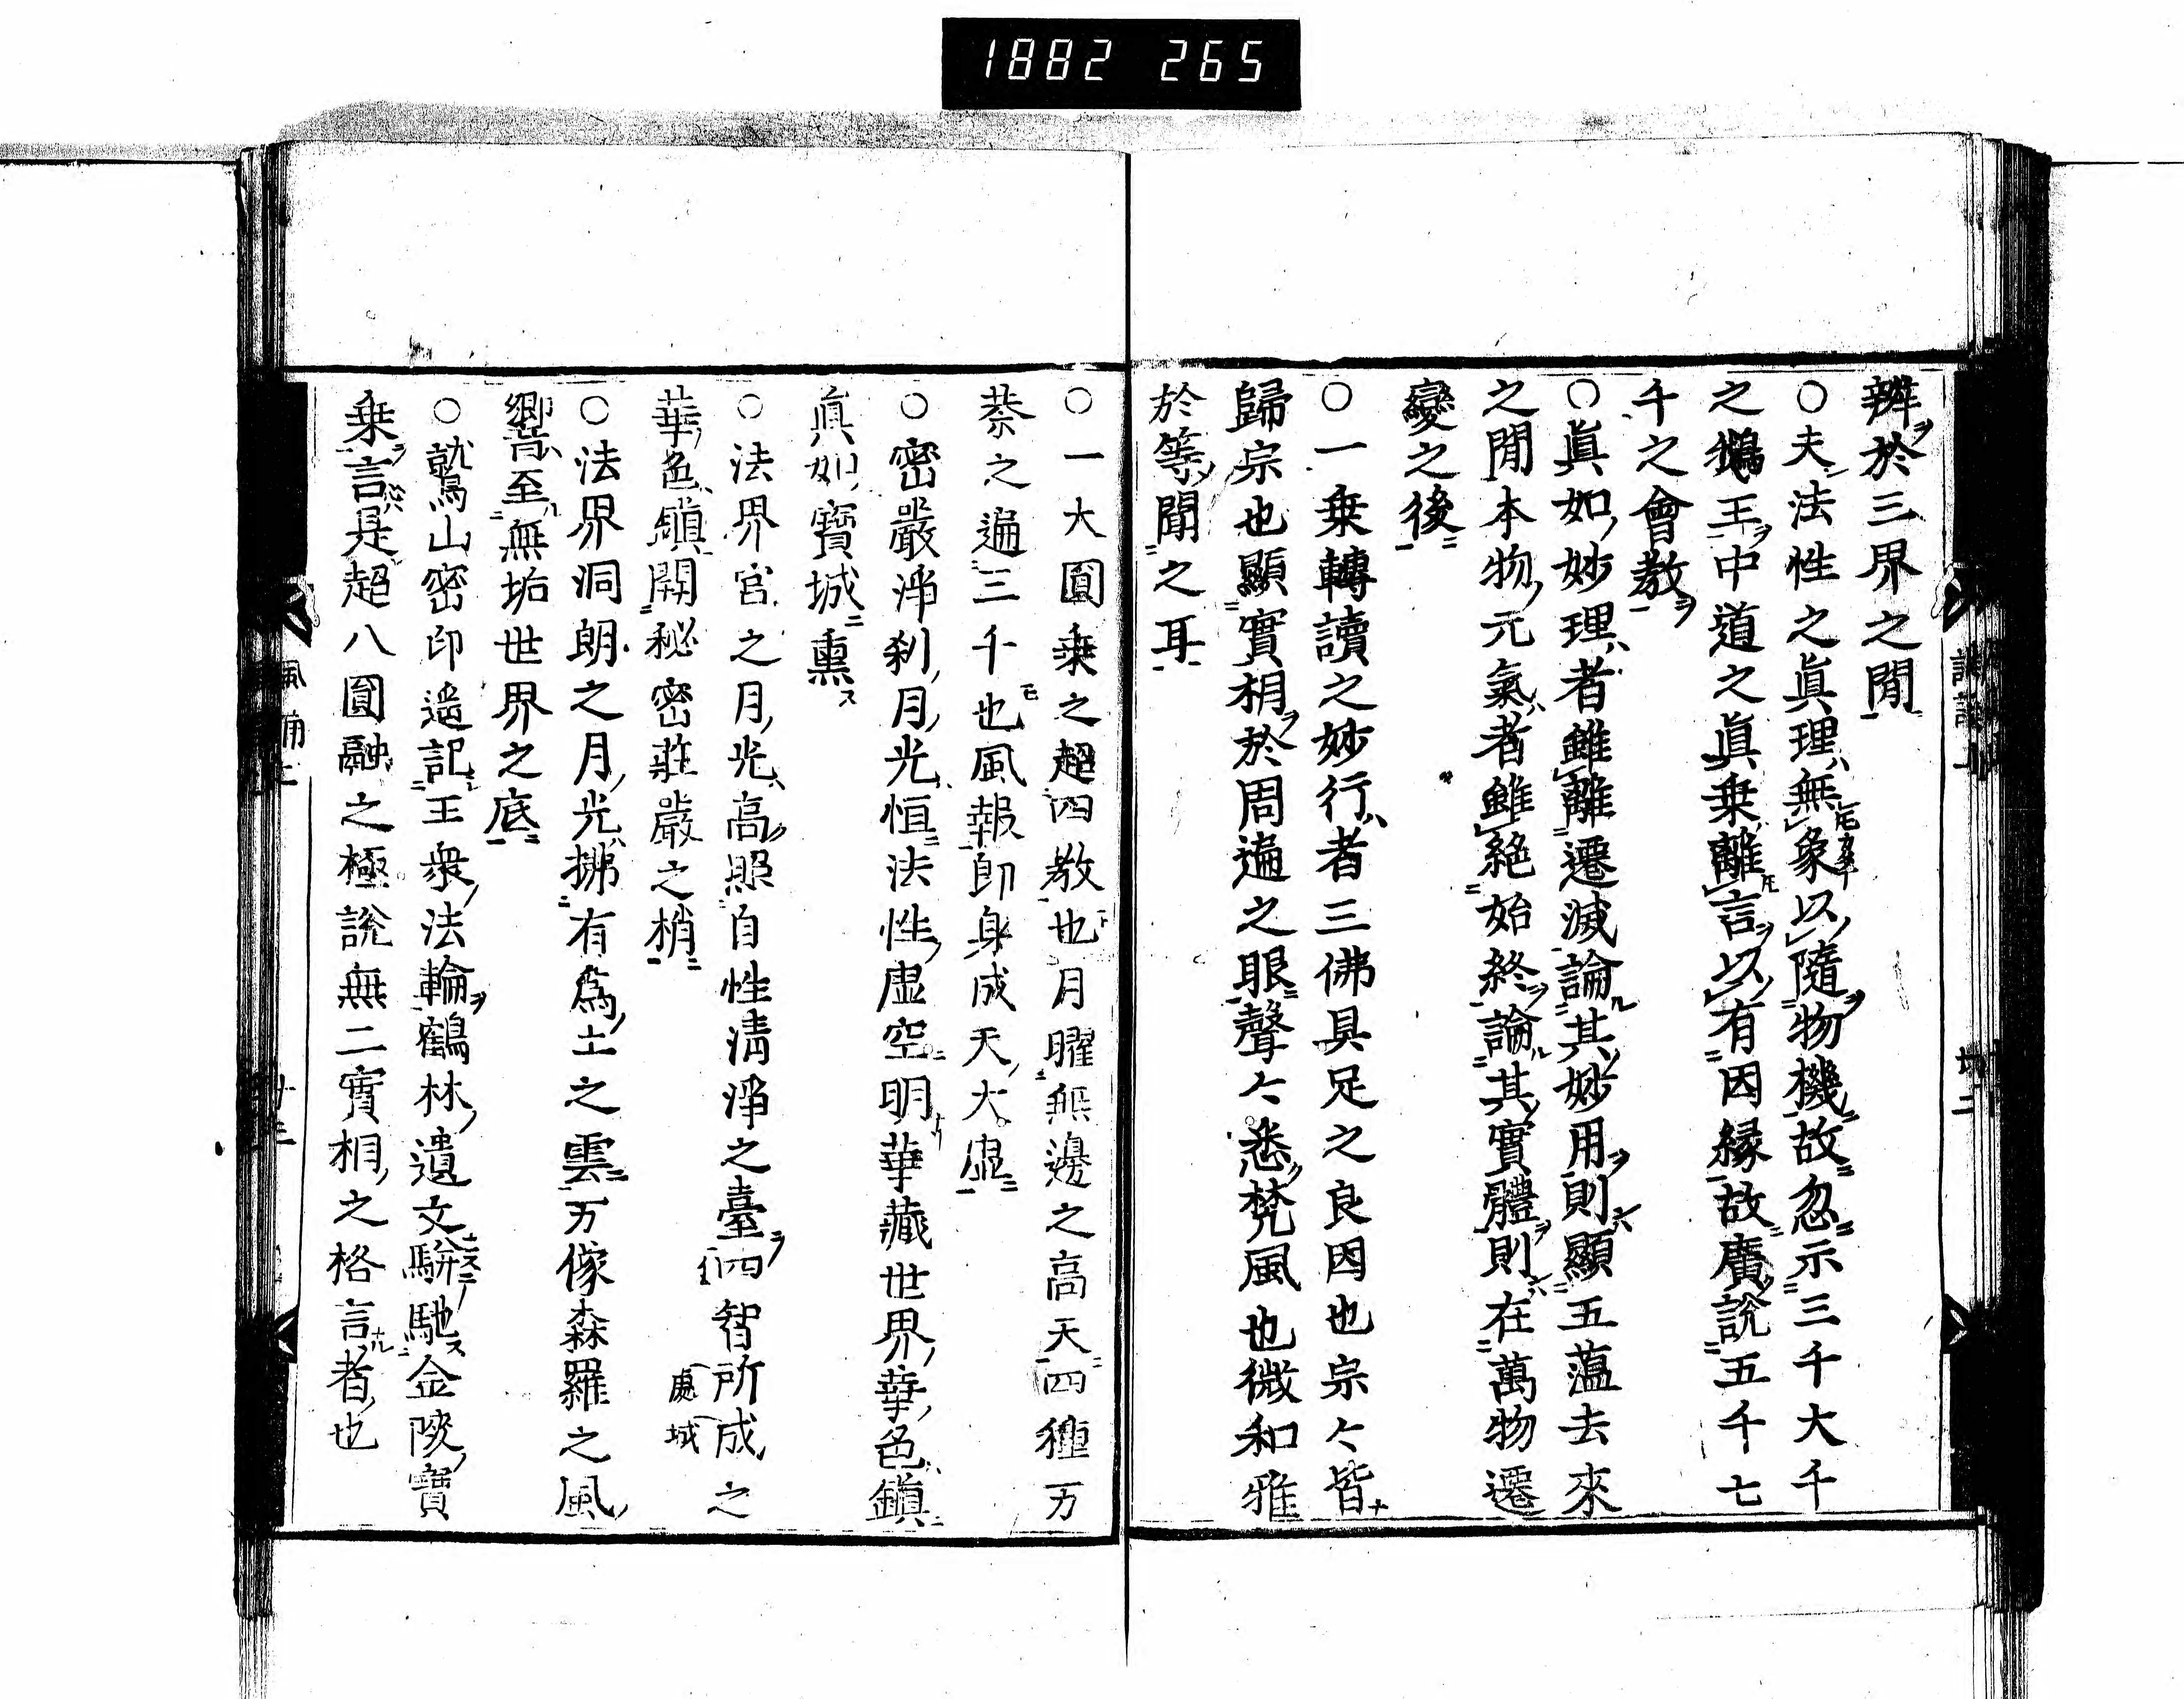 1882 265
辨於三界之間
○夫法性之眞理無象以隨物機故忽示三千大千
之鵝王中道之眞乗離言以有因縁故廣說五千七
千之會教
○眞如妙理者雖離遷滅論其妙用則顯五薀去來
之間本物元氣者雖絶始終論其實體則在萬物遷
變之後
○一乗轉讀之妙行者三佛具足之良因也宗々皆
歸宗也顯實相於周遍之眼聲々悉梵風也微和雅
於等聞之耳
○一大圓乗之超四教也月曜無邊之高天四種万
荼之遍三千也風報即身成天大虚
○密嚴淨刹月光恒法性虚空明華藏世界華色鎮
眞如寶城熏
○法界宮之月光高照自性清淨之臺四智所成之
處 城
華色鎮開秘密莊嚴之梢
○法界洞朗之月光拂有爲土之雲万像森羅之風
響至無垢世界之底
○鷲山密印遙記王衆法輪鶴林遺文駢馳金陵寶
乗言是超八圓融之極說無二實相之格言者也